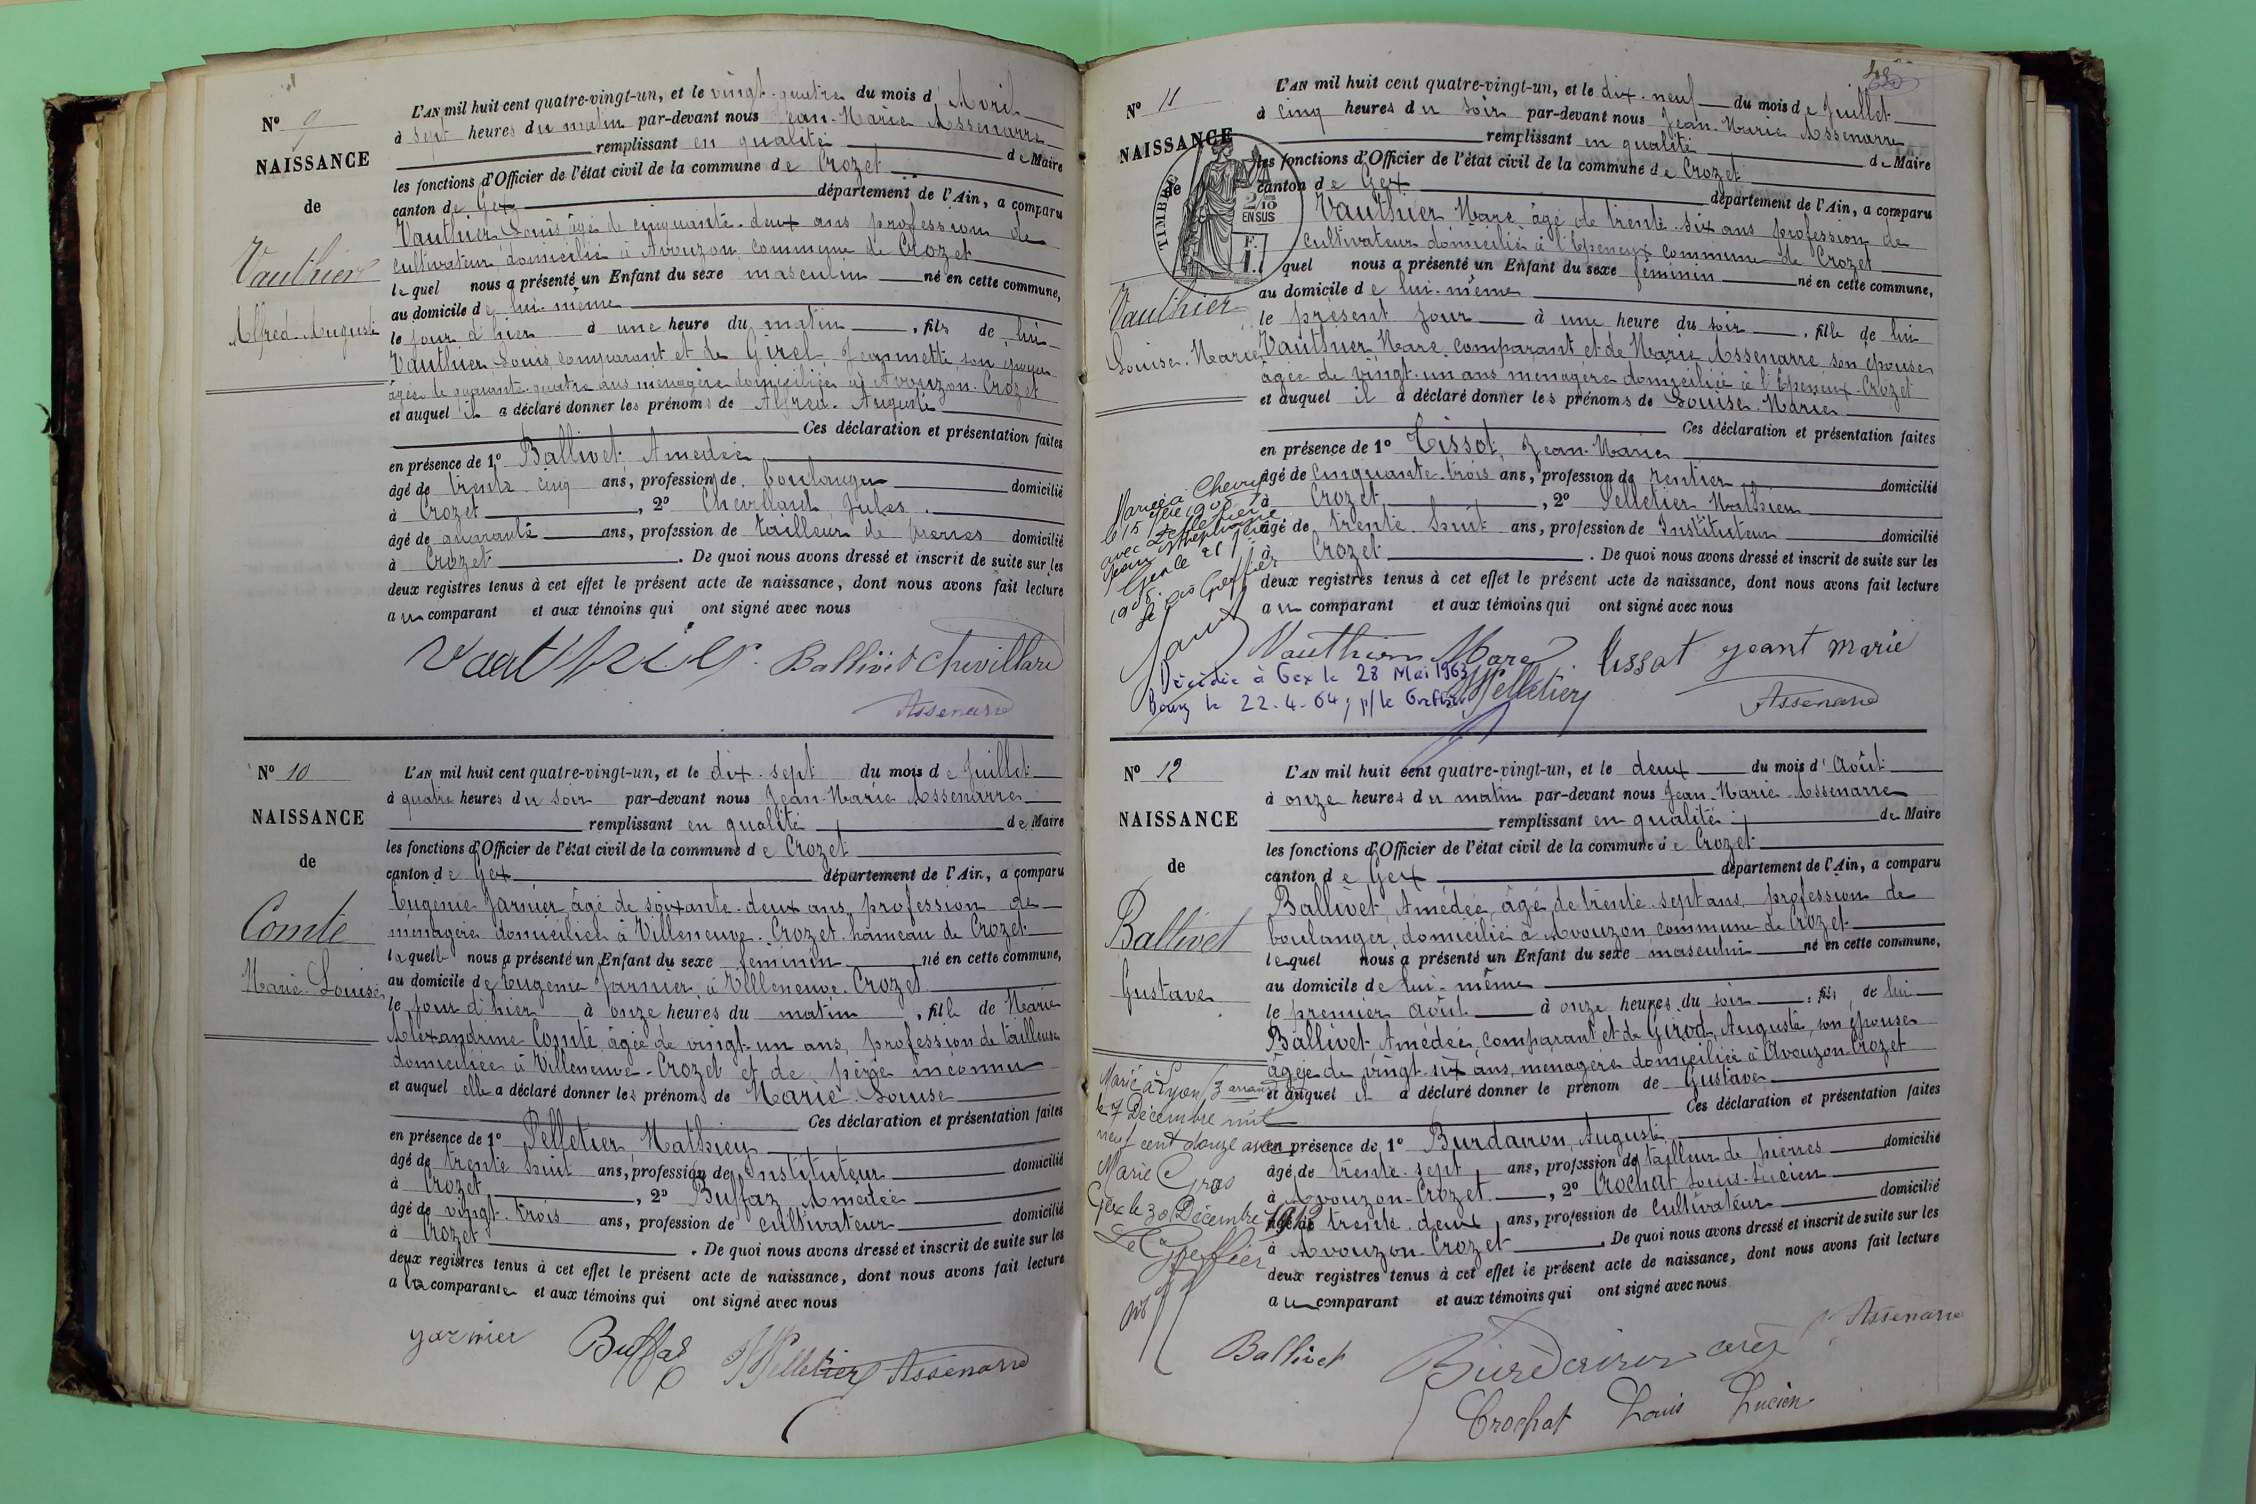 N° 9
NAISSANCE
de
Vauthier
Alfred-Auguste
L'AN mil huit cent quatre-vingt-un, et le vingt-quatre du mois d'Avril
à sept heures du matin par-devant nous Jean-Marie Assenarre
remplissant en qualité de Maire
les fonctions d'Officier de l'état civil de la commune de Crozet
canton de Gex département de l'Ain, a comparu
Vauthier Louis âgé de cinquante-deux ans profession de
cultivateur, domicilié à Avouzon, commune de Crozet
lequel nous a présenté un Enfant du sexe masculin né en cette commune,
au domicile de lui-même
le jour d'hier à une heure du matin, fils de lui
Vauthier Louis, comparant et de Girel Jeannette, son épouse
âgée de quarante-quatre ans ménagère domiciliée à Avouzon-Crozet
et auquel il a déclaré donner les prénoms de Alfred-Auguste
Ces déclaration et présentation faites
en présence de 1° Ballivet, Amédée
âgé de trente cinq ans, profession de boulanger domicilié
à Crozet, 2° Chevillard, Jules
âgé de quarante ans, profession de tailleur de pierres domicilié
à Crozet. De quoi nous avons dressé et inscrit de suite sur les
deux registres tenus à cet effet le présent acte de naissance, dont nous avons fait lecture
au comparant et aux témoins qui ont signé avec nous
Vauthier Ballivet Chevillard
Assenarre
N° 10
NAISSANCE
de
Comte
Marie-Louise
L'AN mil huit cent quatre-vingt-un, et le dix-sept du mois de Juillet
à quatre heures du soir par-devant nous Jean-Marie Assenarre
remplissant en qualité de Maire
les fonctions d'Officier de l'état civil de la commune de Crozet
canton de Gex département de l'Ain, a comparu
Eugénie Jarnier âgé de soixante-deux ans, profession de
ménagère domiciliée à Villeneuve-Crozet, hameau de Crozet
laquelle nous a présenté un Enfant du sexe féminin né en cette commune,
au domicile de Eugénie Jarnier, à Villeneuve-Crozet
le jour d'hier à onze heures du matin, fille de Marie
Alexandrine Comte, âgée de vingt-un ans, profession de tailleuse
domiciliée à Villeneuve-Crozet et de père inconnu
et auquel elle a déclaré donner les prénoms de Marie-Louise
Ces déclaration et présentation faites
en présence de 1° Pelletier, Mathieu
âgé de trente huit ans, profession de Instituteur domicilié
à Crozet, 2° Buffaz Amédée
âgé de vingt-trois ans, profession de cultivateur domicilié
à Crozet. De quoi nous avons dressé et inscrit de suite sur les
deux registres tenus à cet effet le présent acte de naissance, dont nous avons fait lecture
a la comparante et aux témoins qui ont signé avec nous
garnier Buffaz Pelletier Assenarre
N° 11
NAISSANCE
de
TIMBRE
2/10
EN SUS
Vauthier
Louise-Marie
L'AN mil huit cent quatre-vingt-un, et le dix-neuf du mois de Juillet
à cinq heures du soir par-devant nous Jean-Marie Assenarre
remplissant en qualité de Maire
les fonctions d'Officier de l'état civil de la commune de Crozet
canton de Gex département de l'Ain, a comparu
Vauthier Marc âgé de trente-six ans profession de
cultivateur domicilié à l'Epeneux commune de Crozet
quel nous a présenté un Enfant du sexe féminin né en cette commune,
au domicile de lui-même
le présent jour à une heure du soir, fille de lui
Vauthier Marc, comparant et de Marie Assenarre son épouse
âgée de vingt-un ans ménagère domiciliée à l'Epeneux-Crozet
et auquel il a déclaré donner les prénoms de Louise-Marie
Ces déclaration et présentation faites
en présence de 1° Tissot, Jean-Marie
âgé de cinquante-trois ans, profession de rentier domicilié
à Crozet, 2° Pelletier Mathieu
âgé de trente-huit ans, profession de Instituteur domicilié
à Crozet. De quoi nous avons dressé et inscrit de suite sur les
deux registres tenus à cet effet le présent acte de naissance, dont nous avons fait lecture
au comparant et aux témoins qui ont signé avec nous
Mariée à Chevry
le 15
avec
Gex le 21
Le Greffier
Vauthier Marc tissot jeant marie
Pelletier Assenarre
Décédée à Gex le 28 Mai 1963
Bourg le 22-4-64; p/ le Greffier
N° 12
NAISSANCE
de
Ballivet
Gustave
L'AN mil huit cent quatre-vingt-un, et le deux du mois d'Août
à onze heures du matin par-devant nous Jean-Marie Assenarre
remplissant en qualité de Maire
les fonctions d'Officier de l'état civil de la commune de Crozet
canton de Gex département de l'Ain, a comparu
Ballivet, Amédée, âgé de trente-sept ans, profession de
boulanger, domicilié à Avouzon commune de Crozet
lequel nous a présenté un Enfant du sexe masculin né en cette commune,
au domicile de lui-même
le premier Août à onze heures du soir, fils de lui
Ballivet Amédée, comparant et de Girod, Auguste, son épouse
âgée de vingt-six ans, ménagère domiciliée à Avouzon Crozet
et auquel il a déclaré donner le prénom de Gustave
Ces déclaration et présentation faites
en présence de 1° Burdairon, Auguste
âgé de trente-sept ans, profession de tailleur de pierres domicilié
à Avouzon-Crozet, 2° Crochat Louis-Lucien
âgé de trente-deux ans, profession de cultivateur domicilié
à Avouzon-Crozet. De quoi nous avons dressé et inscrit de suite sur les
deux registres tenus à cet effet le présent acte de naissance, dont nous avons fait lecture
au comparant et aux témoins qui ont signé avec nous
Marié à Lyon, 3
le 7 Décembre mil
neuf cent douze avec
Marie Gros
Gex le 30 Décembre 1912
Le Greffier
Ballivet Assenarre
Crochat Louis Lucien